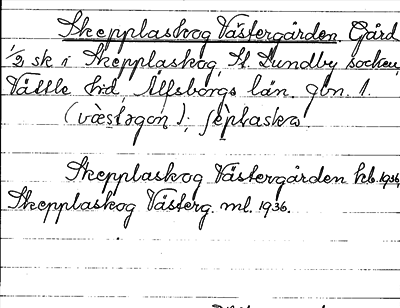 Skepplaskog Västergården. Gård
1/2 sk i Skepplaskog, St. Lundby socken,
Vättle hd, Älfsborgs län. gbn. 1.
Skepplaskog Västergården kb. 1936,
Skepplaskog Västerg. ml. 1936.